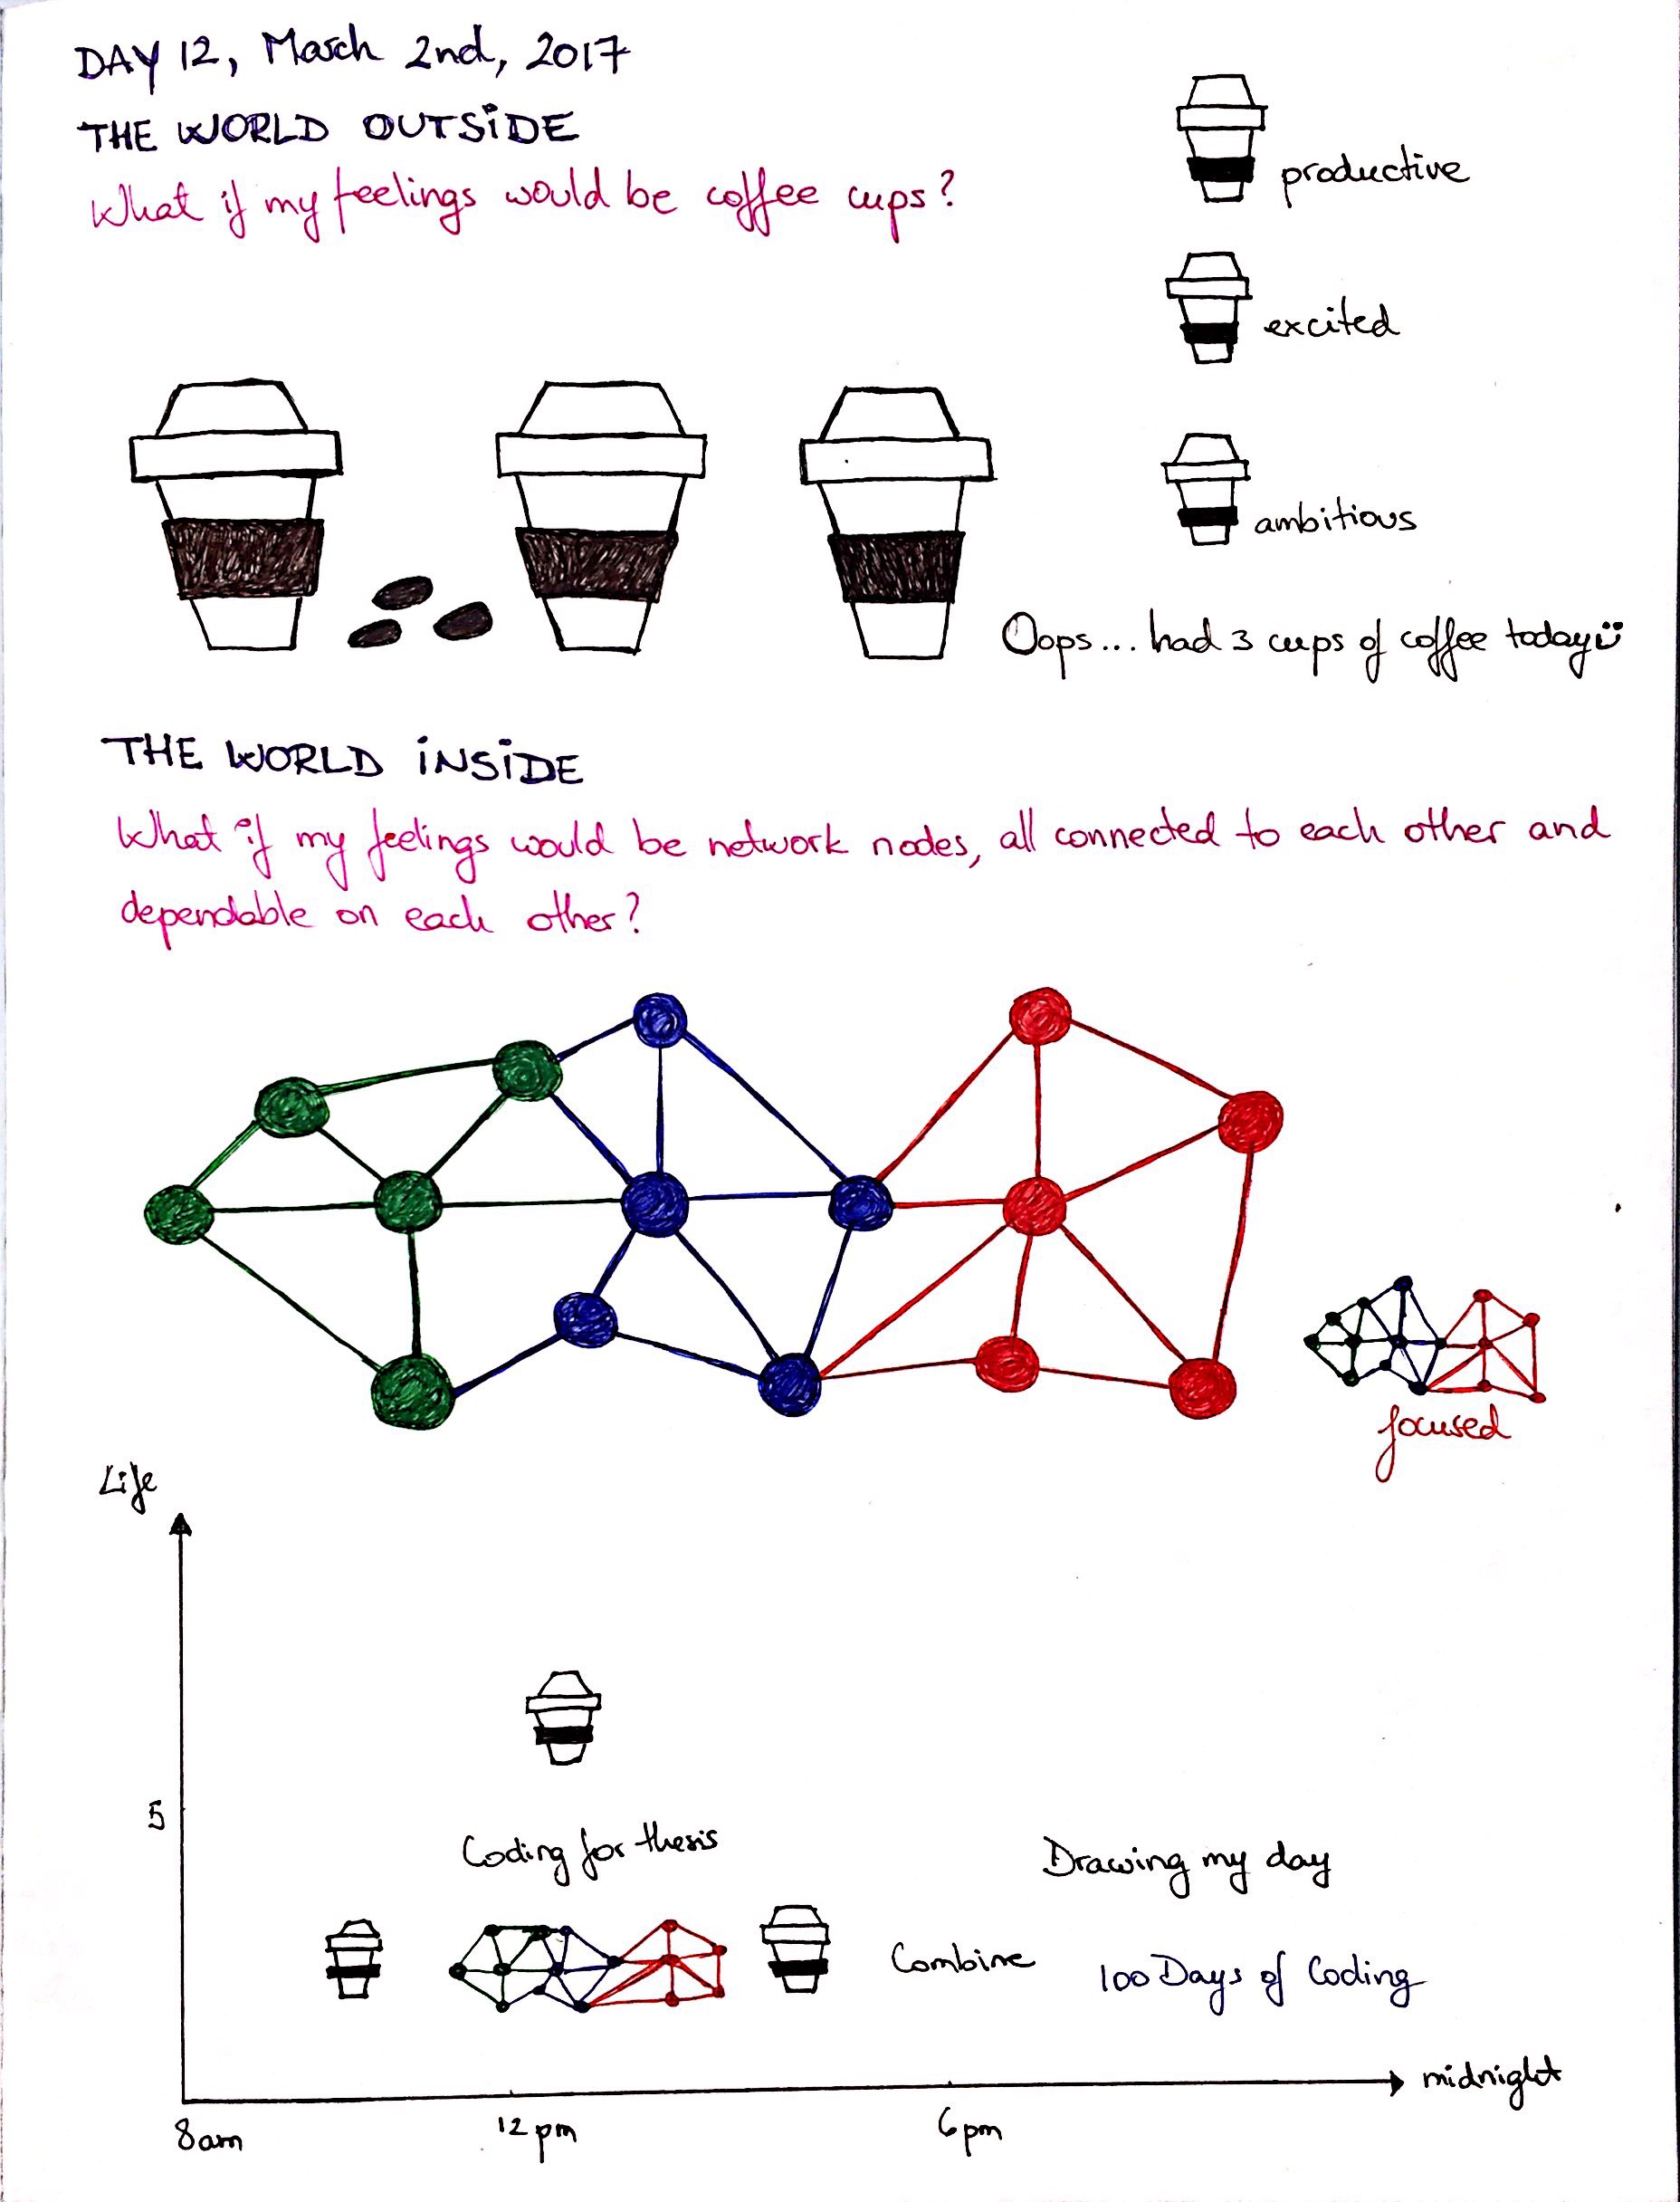 DAY 12, March 2nd, 2017
THE WORLD OUTSIDE
What if my feelings would be coffee cups?
productive
excited
ambitious
Oops... had 3 cups of coffee today
THE WORLD INSIDE
What if my feelings would be network nodes, all connected to each other and
dependable on each other?
focused
Life
5
Coding for thesis
Drawing my day
Combine
100 Days of Coding
midnight
8am
12pm
6pm